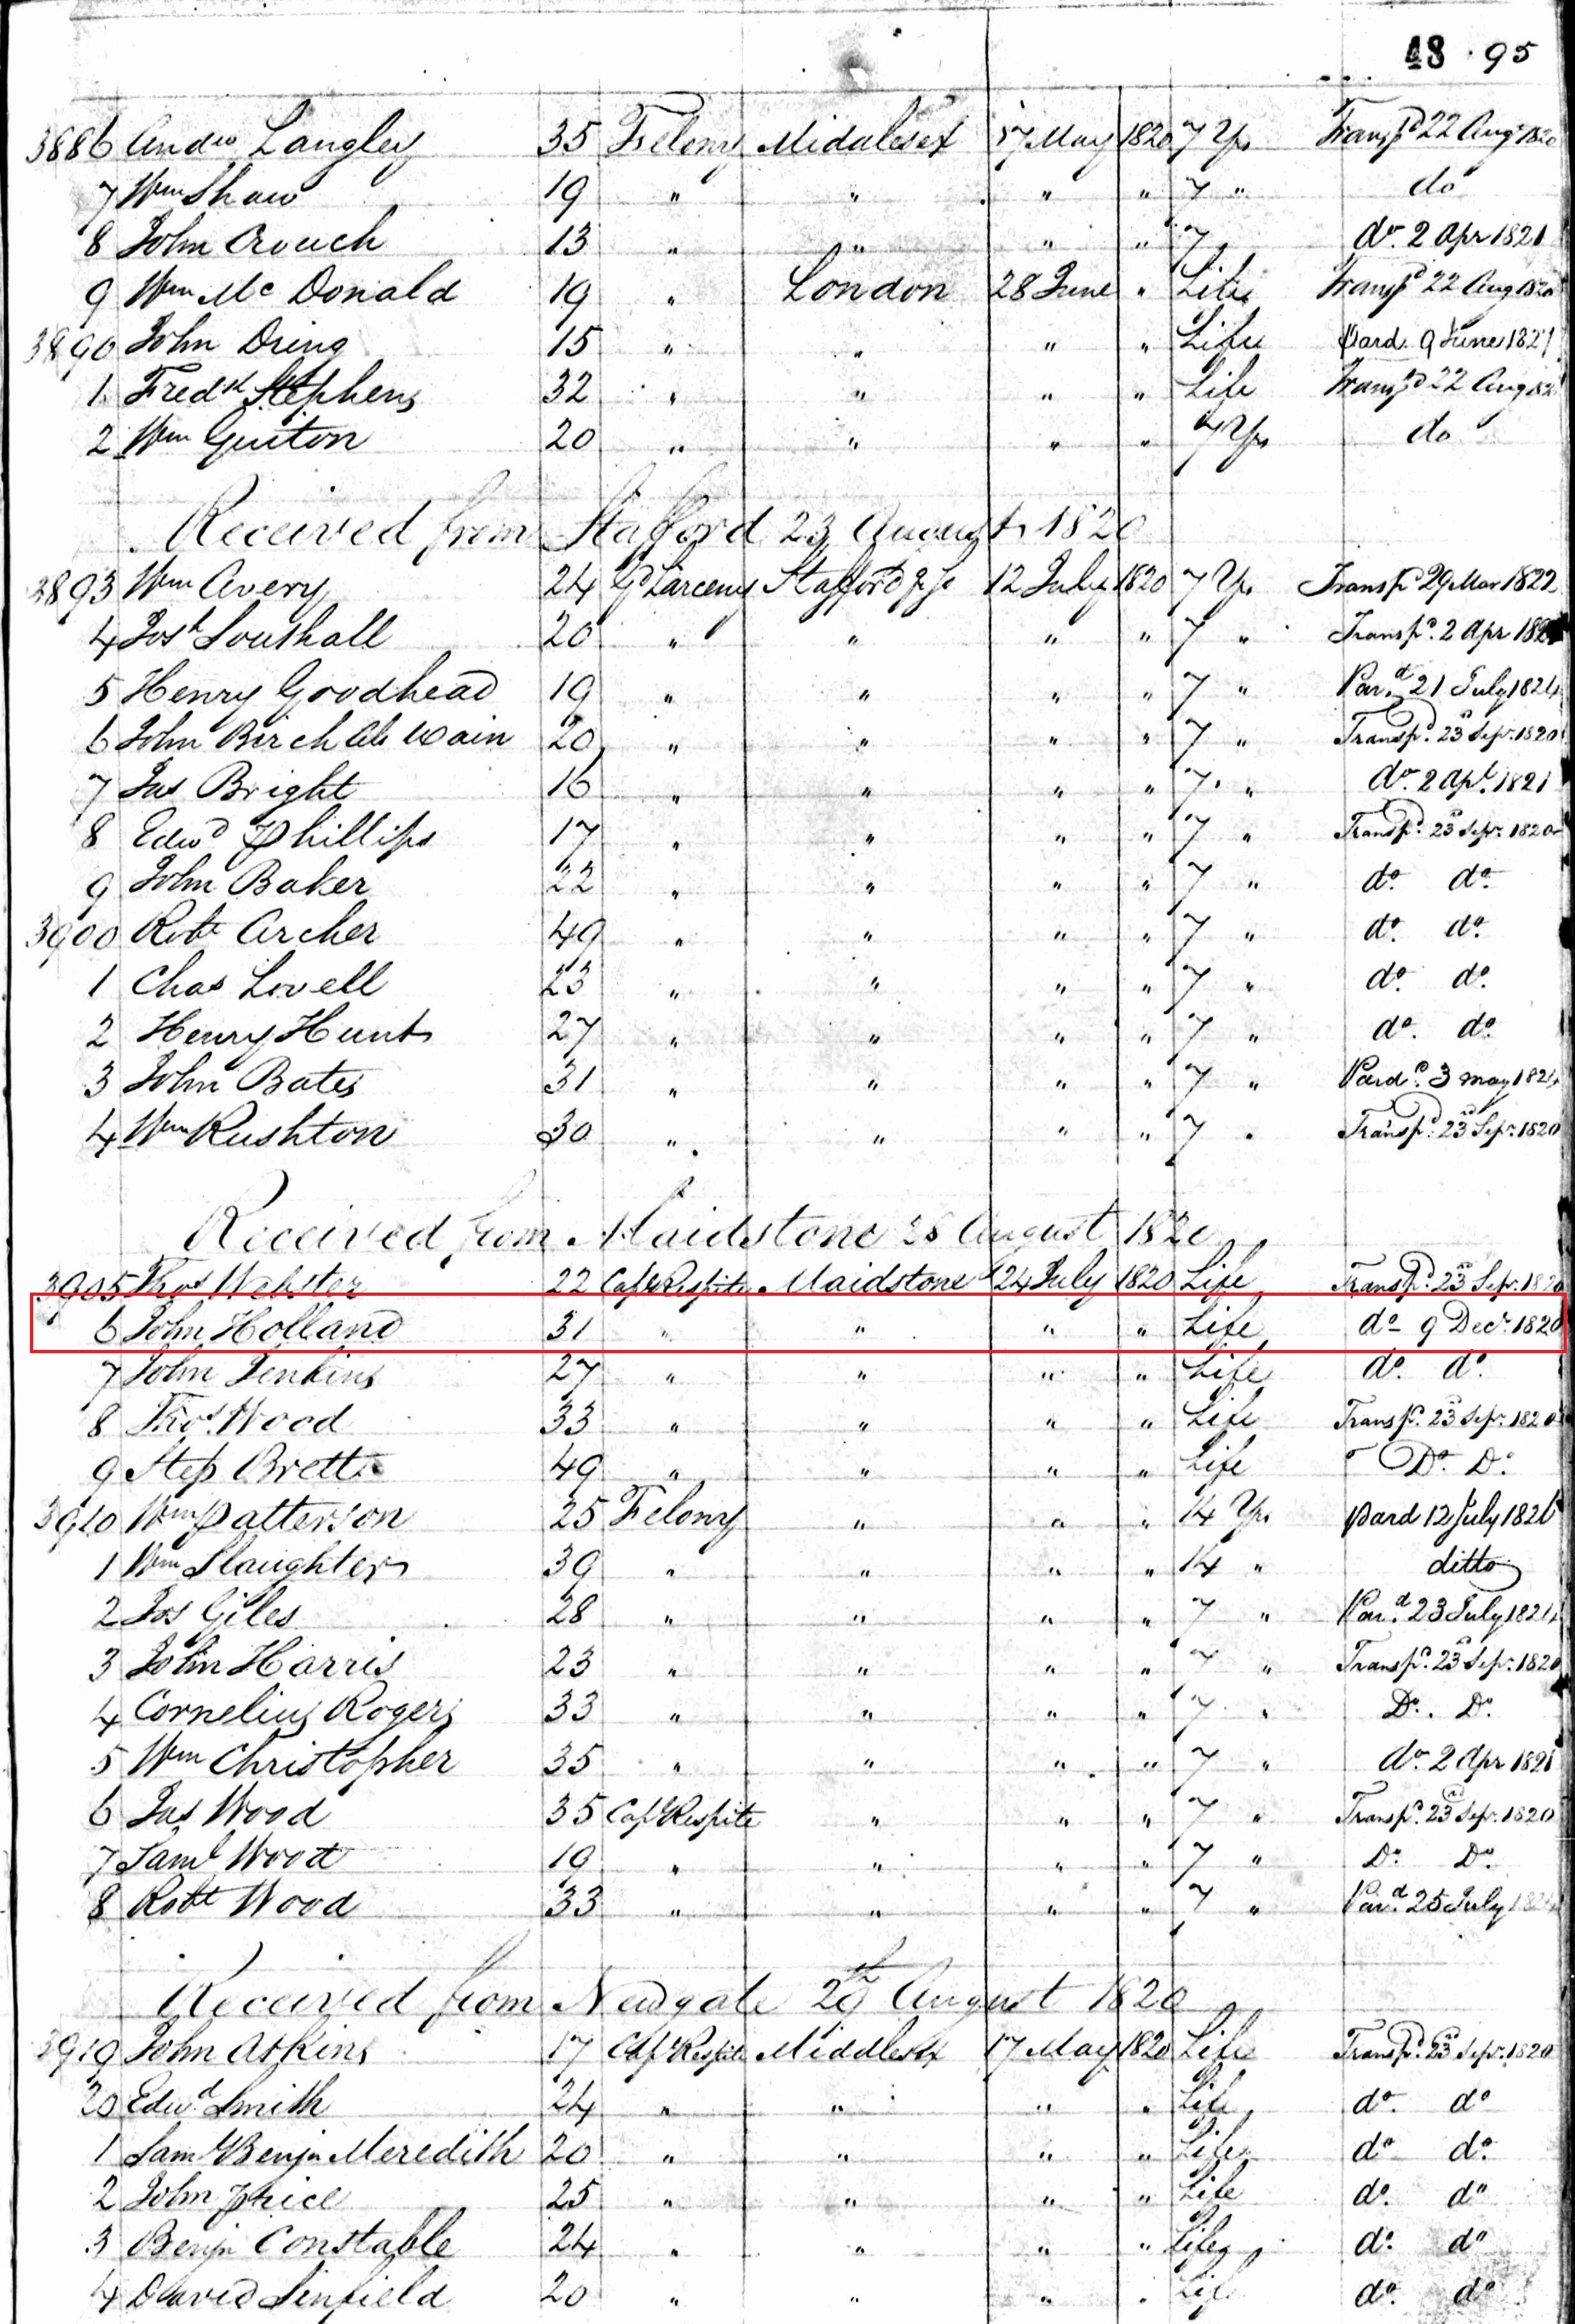 48 · 95
3886 Andw Langley 35 Felony Middlesex 17 May 1820 7 Yrs Transpd 22 Augt 1820
7 Wm Shaw 19 " " " " 7 " do
8 John Crouch 13 " " " " 7 do. 2 Apr 1821
9 Wm Mc Donald 19 " London 28 June " Life Transpd 22 Aug 1820
3890 John Dring 15 " " " " Life Pard. 9 June 1821
1 Fredk Stephens 32 " " " " Life Transpd 22 Aug 182
2 Wm Guiton 20 " " " " 7 Yrs do
Received from Stafford 23 August 1820
3893 Wm Avery 24 Gd Larceny Stafford 12 July 1820 7 Yrs Transpd 29 Mar 1822
4 Josh Southall 20 " " " " 7 " Transpd. 2 Apr 182
5 Henry Goodhead 19 " " " " 7 " Pard. 21 July 1824
6 John Birch als Wain 20 " " " " 7 " Transpd. 23 Sepr. 1820
7 Jas Bright 16 " " " " 7 " do. 2 Apl. 1821
8 Edwd Phillips 17 " " " " 7 " Transpd. 23 Sepr. 1820
9 John Baker 22 " " " " 7 " do. do.
3900 Robt Archer 49 " " " " 7 " do. do.
1 Chas Lovell 23 " " " " 7 " do. do.
2 Henry Hunt 27 " " " " 7 " do. do.
3 John Bates 31 " " " " 7 " Pardd. 3 May 1824
4 Wm Rushton 30 " " " " 7 " Transpd. 23 Sepr. 1820
Received from Maidstone 28 August 1820
3905 Thos Webster 22 Capl Respite Maidstone 24 July 1820 Life Transpd. 23 Sepr. 1820
6 John Holland 31 " " " " Life do - 9 Decr. 1820
7 John Jenkins 27 " " " " Life do. do.
8 Thos. Wood 33 " " " " Life Transpd. 23 Sepr. 1820
9 Step Brett 49 " " " " Life Do. Do.
3910 Wm Patterson 25 Felony " " " 14 Yrs Pard 12 July 1826
1 Wm Slaughter 39 " " " " 14 " ditto
2 Jos Giles 28 " " " " 7 " Pard. 23 July 1824
3 John Harris 23 " " " " 7 " Transpd. 23 Sepr. 1820
4 Cornelius Rogers 33 " " " " 7 " Do. Do.
5 Wm Christopher 35 " " " " 7 " do. 2 Apr 1821
6 Jas Wood 35 Capl Respite " " " 7 " Transpd. 23 Sepr. 1820
7 Saml Wood 19 " " " " 7 " Do. Do.
8 Robt Wood 33 " " " " 7 " Pard. 25 July 1824
Received from Newgate 29th August 1820
3919 John Atkins 17 Capl Respite Middlesex 17 May 1820 Life Transpd. 23 Sepr. 1820
20 Edwd. Smith 24 " " " " Life do. do
1 Saml Benjn Meredith 20 " " " " Life do do.
2 John Price 25 " " " " Life do. do
3 Benjn Constable 24 " " " " Life do. do
4 David Sinfield 20 " " " " Life do. do